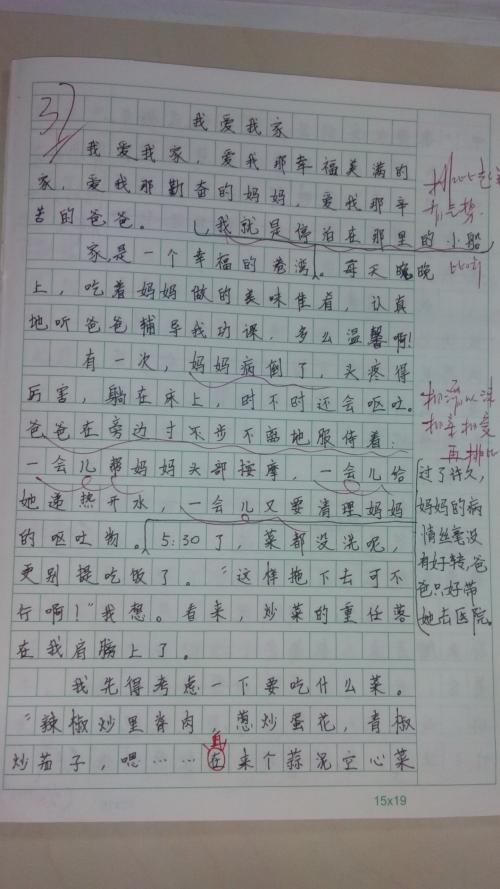 我爱我家
我爱我家，爱我那幸福美满的
家，爱我那勤奋的妈妈，爱我那辛
苦的爸爸。
家，是一个幸福的港湾，我就是停泊在那里的小船
。每天晚晚
上，吃着妈妈做的美味佳肴，认真
地听爸爸辅导我功课，多么温馨啊！
有一次，妈妈病倒了，头疼得
厉害，躺在床上，时不时还会呕吐。
爸爸在旁边寸步不离地服侍着：
一会儿帮妈妈头部按摩，一会儿给
她递热开水，一会儿又要清理妈妈
的呕吐物。
过了许久，
妈妈的病
情丝毫没
有好转，爸
爸只好带
她去医院。
5:30了，菜都没洗呢，
更别提吃饭了。“这样拖下去可不
行啊！”我想。看来，炒菜的重任落
在我肩膀上了。
我先得考虑一下要吃什么菜。
“辣椒炒里脊肉，葱炒蛋花，青椒
炒茄子，嗯……在来个蒜泥空心菜
再
比喻
15x19